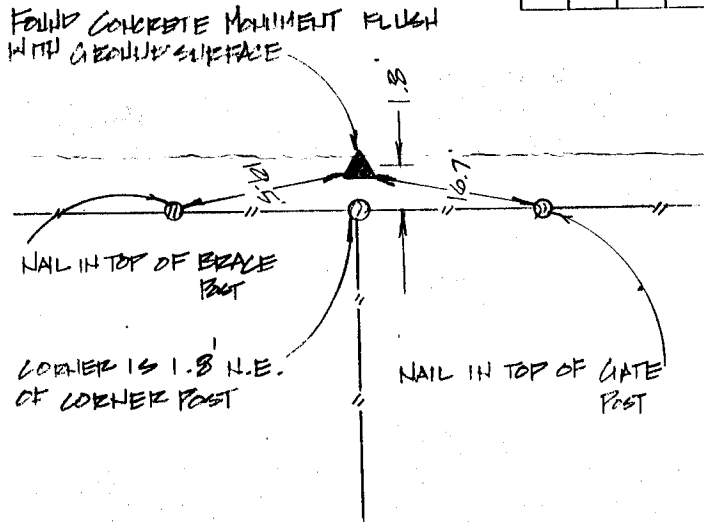 FOUND CONCRETE MONUMENT FLUSH
WITH GROUND SURFACE
1.8'
19.5'
16.7'
NAIL IN TOP OF BRACE
POST
CORNER IS 1.8' N.E.
OF CORNER POST
NAIL IN TOP OF GATE
POST